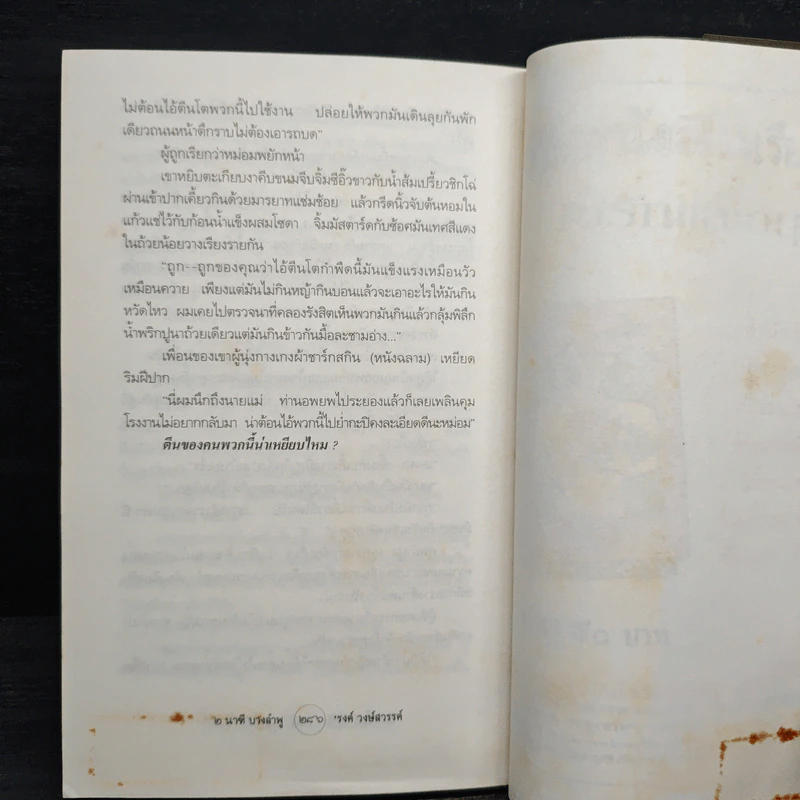 ไม่ต้อนไอ้ตีนโตพวกนี้ไปใช้งาน ปล่อยให้พวกมันเดินลุยกันพัก
เดียวถนนหน้าตึกราบไม่ต้องเอารถบด"
ผู้ถูกเรียกว่าหม่อมพยักหน้า
เขาหยิบตะเกียบงาคีบขนมจีบจิ้มซีอิ๊วขาวกับน้ำส้มเปรี้ยวชิกโฉ่
ผ่านเข้าปากเคี้ยวกินด้วยมารยาทแช่มช้อย แล้วกรีดนิ้วจับต้นหอมใน
แก้วแช่ไว้กับก้อนน้ำแข็งผสมโซดา จิ้มมัสตาร์ดกับซ้อศมันเทศสีแดง
ในถ้วยน้อยวางเรียงรายกัน
"ถูก--ถูกของคุณว่าไอ้ตีนโตกำพืดนี้มันแข็งแรงเหมือนวัว
เหมือนควาย เพียงแต่มันไม่กินหญ้ากินบอนแล้วจะเอาอะไรให้มันกิน
หวัดไหว ผมเคยไปตรวจนาที่คลองรังสิตเห็นพวกมันกินแล้วกลุ้มพิลึก
น้ำพริกปูนาถ้วยเดียวแต่มันกินข้าวกันมื้อละชามอ่าง..."
เพื่อนของเขาผู้นุ่งกางเกงผ้าชาร์กสกิน (หนังฉลาม) เหยียด
ริมฝีปาก
"นี่ผมนึกถึงนายแม่ ท่านอพยพไประยองแล้วก็เลยเพลินคุม
โรงงานไม่อยากกลับมา น่าต้อนไอ้พวกนี้ไปย่ำกะปิคงละเอียดดีนะหม่อม"
ตีนของคนพวกนี้น่าเหยียบไหม ?
๒ นาฑี บางลำพู ๒๘๖ 'รงค์ วงษ์สวรรค์